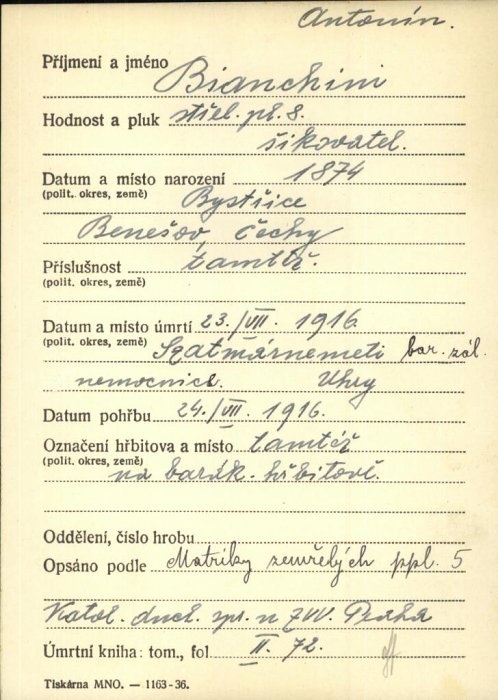 Antonín.
Příjmení a jméno Bianchini
Hodnost a pluk střel. pl. 8.
šikovatel.
Datum a místo narození 1874
(polit. okres, země) Bystřice
Benešov, Čechy
Příslušnost tamtéž.
(polit. okres, země)
Datum a místo úmrtí 23./VII. 1916.
(polit. okres, země) Szatmárnemeti bar. zál.
nemocnice. Uhry
Datum pohřbu 24./VII. 1916.
Označení hřbitova a místo tamtéž
(polit. okres, země) na barák. hřbitově.
Oddělení, číslo hrobu
Opsáno podle Matriky zemřelých ppl. 5
Katol. duch. spr. u ZVV. Praha
Úmrtní kniha: tom., fol. II. 72.
Tiskárna MNO. — 1163-36.